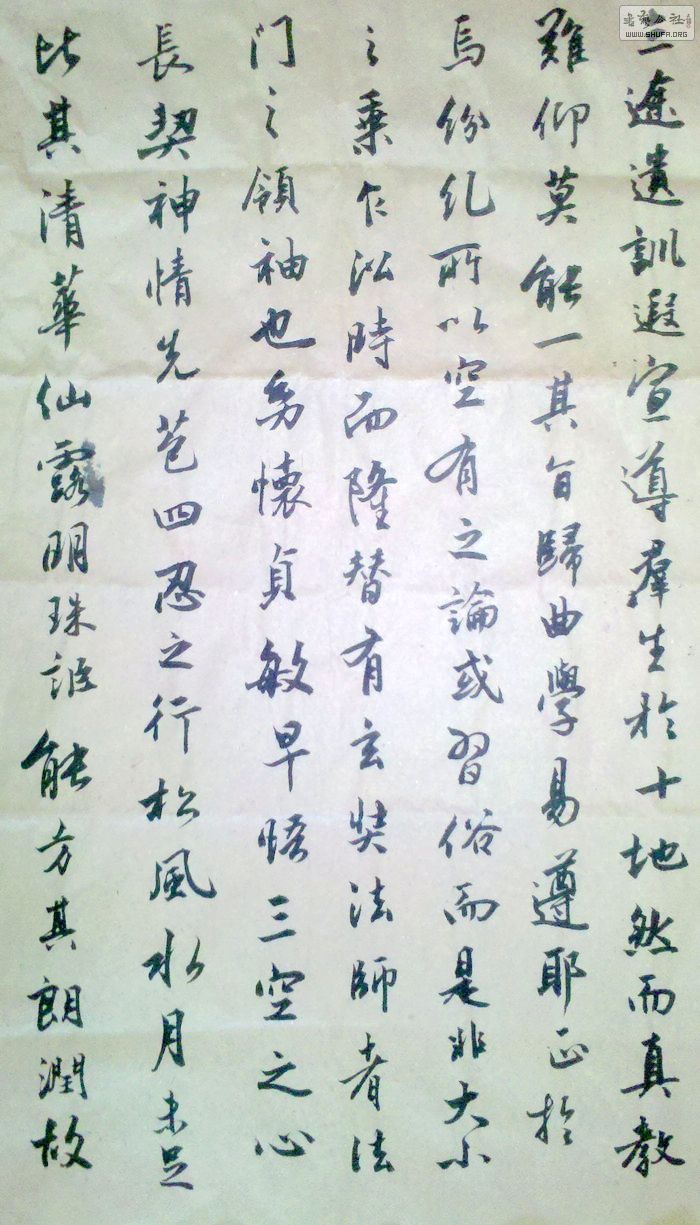 三途遺訓遐宣導羣生於十地然而真教
難仰莫能一其旨歸曲學易遵耶正於
焉紛糺所以空有之論或習俗而是非大小
之乘乍沿時而隆替有玄奘法師者法
門之領袖也幼懷貞敏早悟三空之心
長契神情先苞四忍之行松風水月未足
比其清華仙露明珠詎能方其朗潤故
WWW.SHUFA.ORG